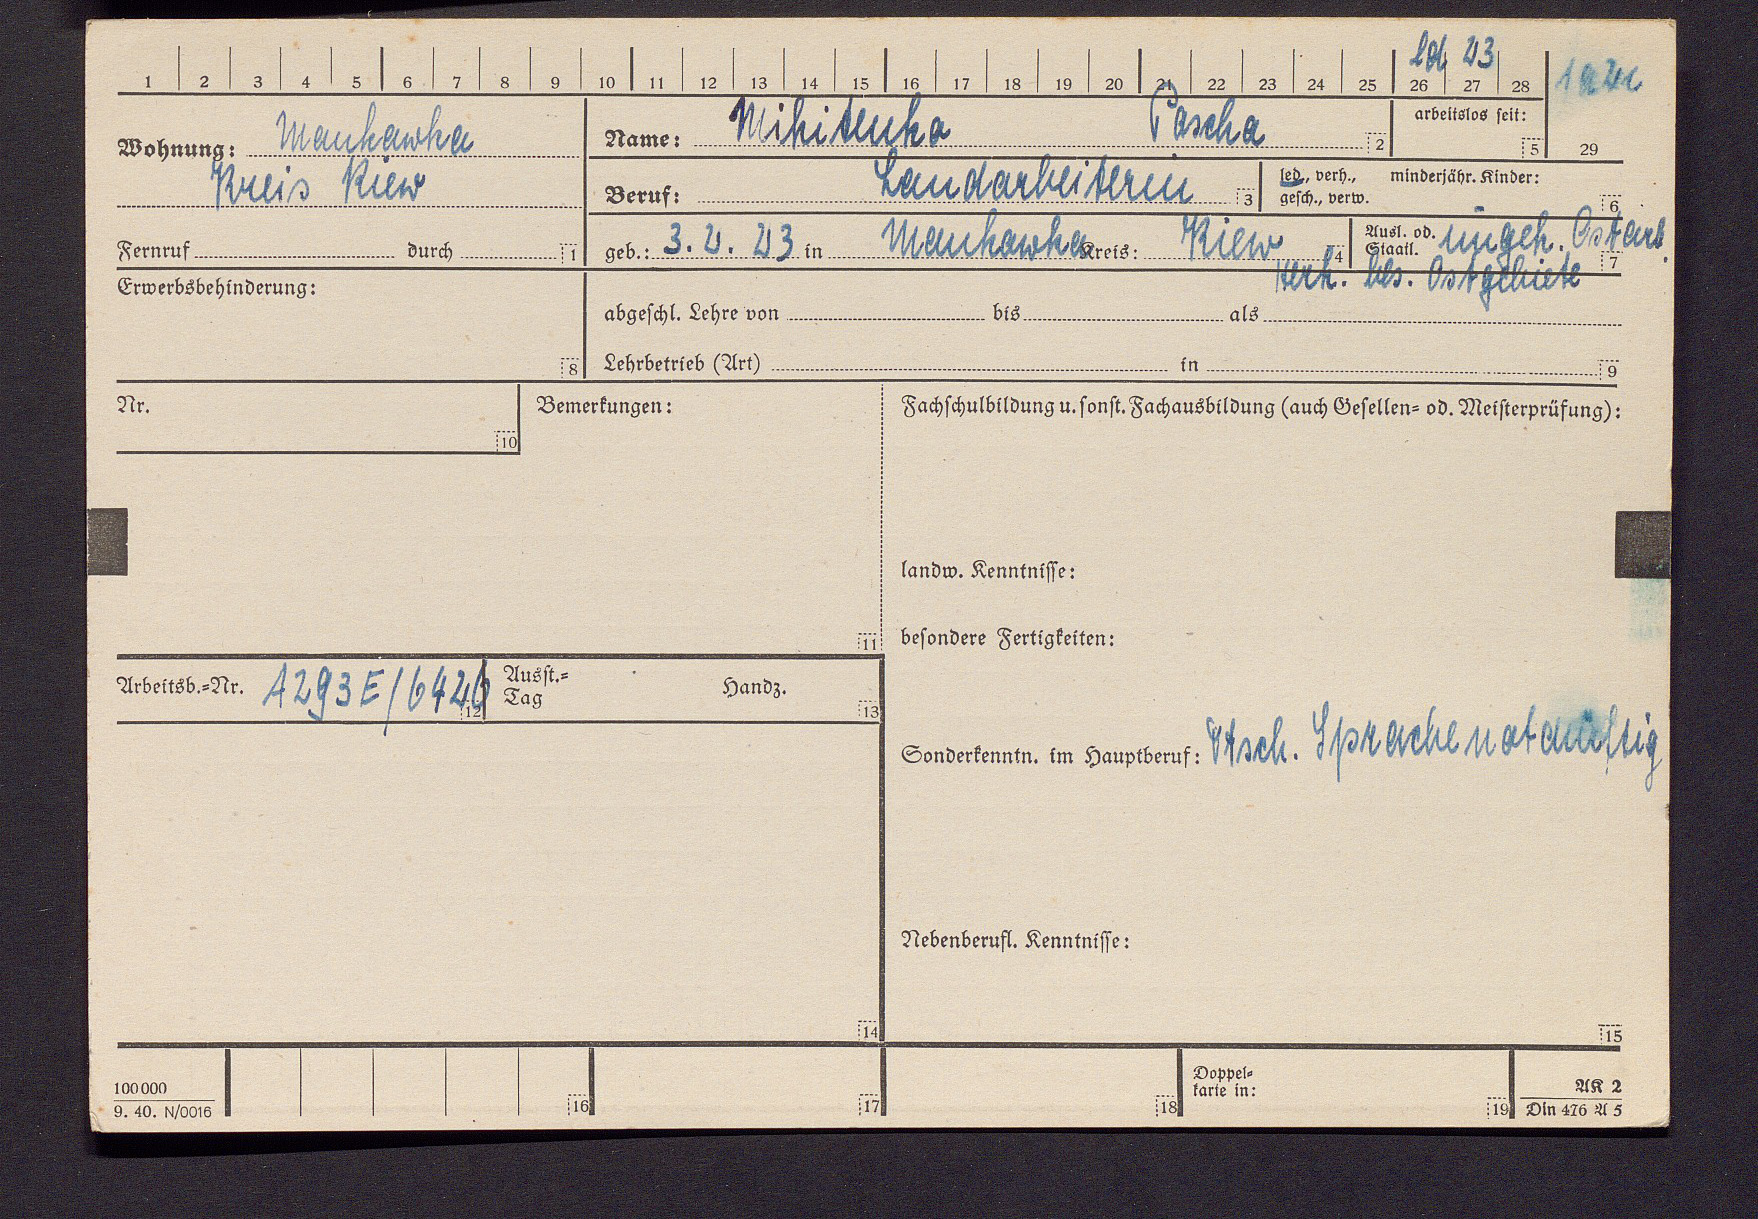 1 2 3 4 5 6 7 8 9 10 11 12 13 14 15 16 17 18 19 20 21 22 23 24 25 26 27 28
23
Wohnung: Mankawka
Kreis Kiew
Fernruf durch 1
Name: Mikitenko Pascha 2
arbeitslos seit: 5
29
Beruf: Landarbeiterin 3
led., verh., gesch., verw. minderjähr. Kinder: 6
geb.: 3.2.23 in Mankawka Kreis: Kiew 4
Ausl. od. Staatl. ungek. Ostarb. 7
Herk. bes. Ostgebiete
Erwerbsbehinderung: 8
abgeschl. Lehre von bis als
Lehrbetrieb (Art) in 9
Nr. 10
Bemerkungen: 11
Fachschulbildung u. sonst. Fachausbildung (auch Gesellen= od. Meisterprüfung):
landw. Kenntnisse:
besondere Fertigkeiten:
Arbeitsb.=Nr. A293E/6426 12
Ausst.=Tag Handz. 13
Sonderkenntn. im Hauptberuf: Dtsch. Sprache notdürftig
Nebenberufl. Kenntnisse:
14
15
100 000
9. 40. N/0016
16
17
18
Doppel=
karte in:
19
AK 2
Din 476 A 5